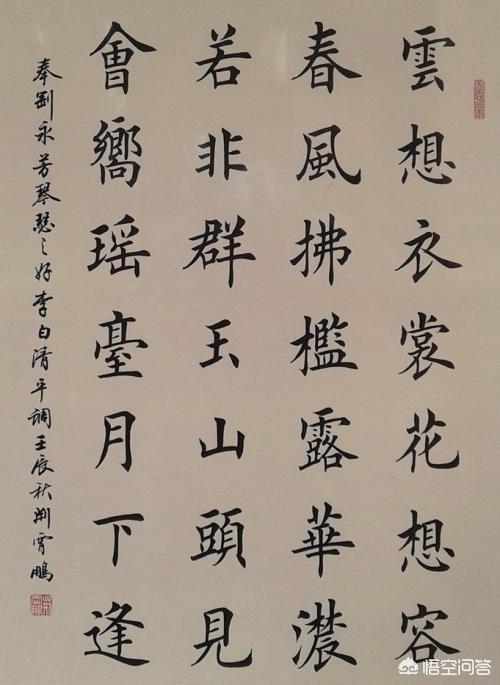 雲想衣裳花想容
春風拂檻露華濃
若非群玉山頭見
會嚮瑶臺月下逢
奉劉永芳琴瑟之好李白清平調壬辰秋霄鵬
悟空问答